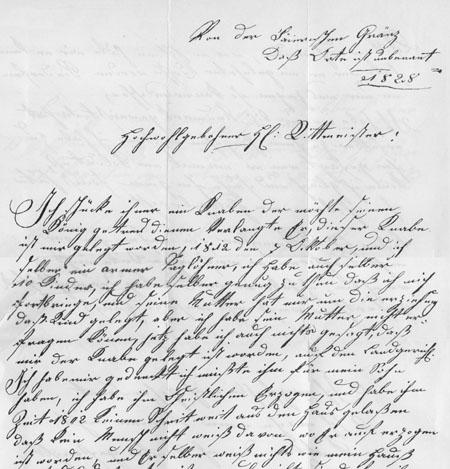 Von der Bäierischen Gränz
daß Orte ist unbenant
1828
Hochwohlgebohner Hr: Rittmeister!
Ich schücke ihner ein Knaben der möchte seinen
König getreu dienen Verlangte Er, dieser Knabe
ist mir gelegt worden, 1812 den 7 Ocktober, und ich
selber ein armer Taglöhner, ich habe auch selber
10 Kinder, ich habe selber genug zu thun daß ich mich
fortbringe, und seine Mutter hat mir um die erziehung
daß Kind gelegt, aber ich habe sein Mutter nicht er-
fragen Könen, jetz habe ich auch nichts gesagt, daß
mir der Knabe gelegt ist worden, auf den Landgericht.
Ich habe mir gedenckt ich müßte ihm für mein Sohn
haben, ich habe ihm Christlichen Erzogen, und habe ihm
Zeit 1812 Keinen Schrit weit aus den Haus gelaßen
daß Kein Mensch nicht weiß da von wo Er auf erzogen
ist worden, und Er selber weiß nichts wie mein Hauß